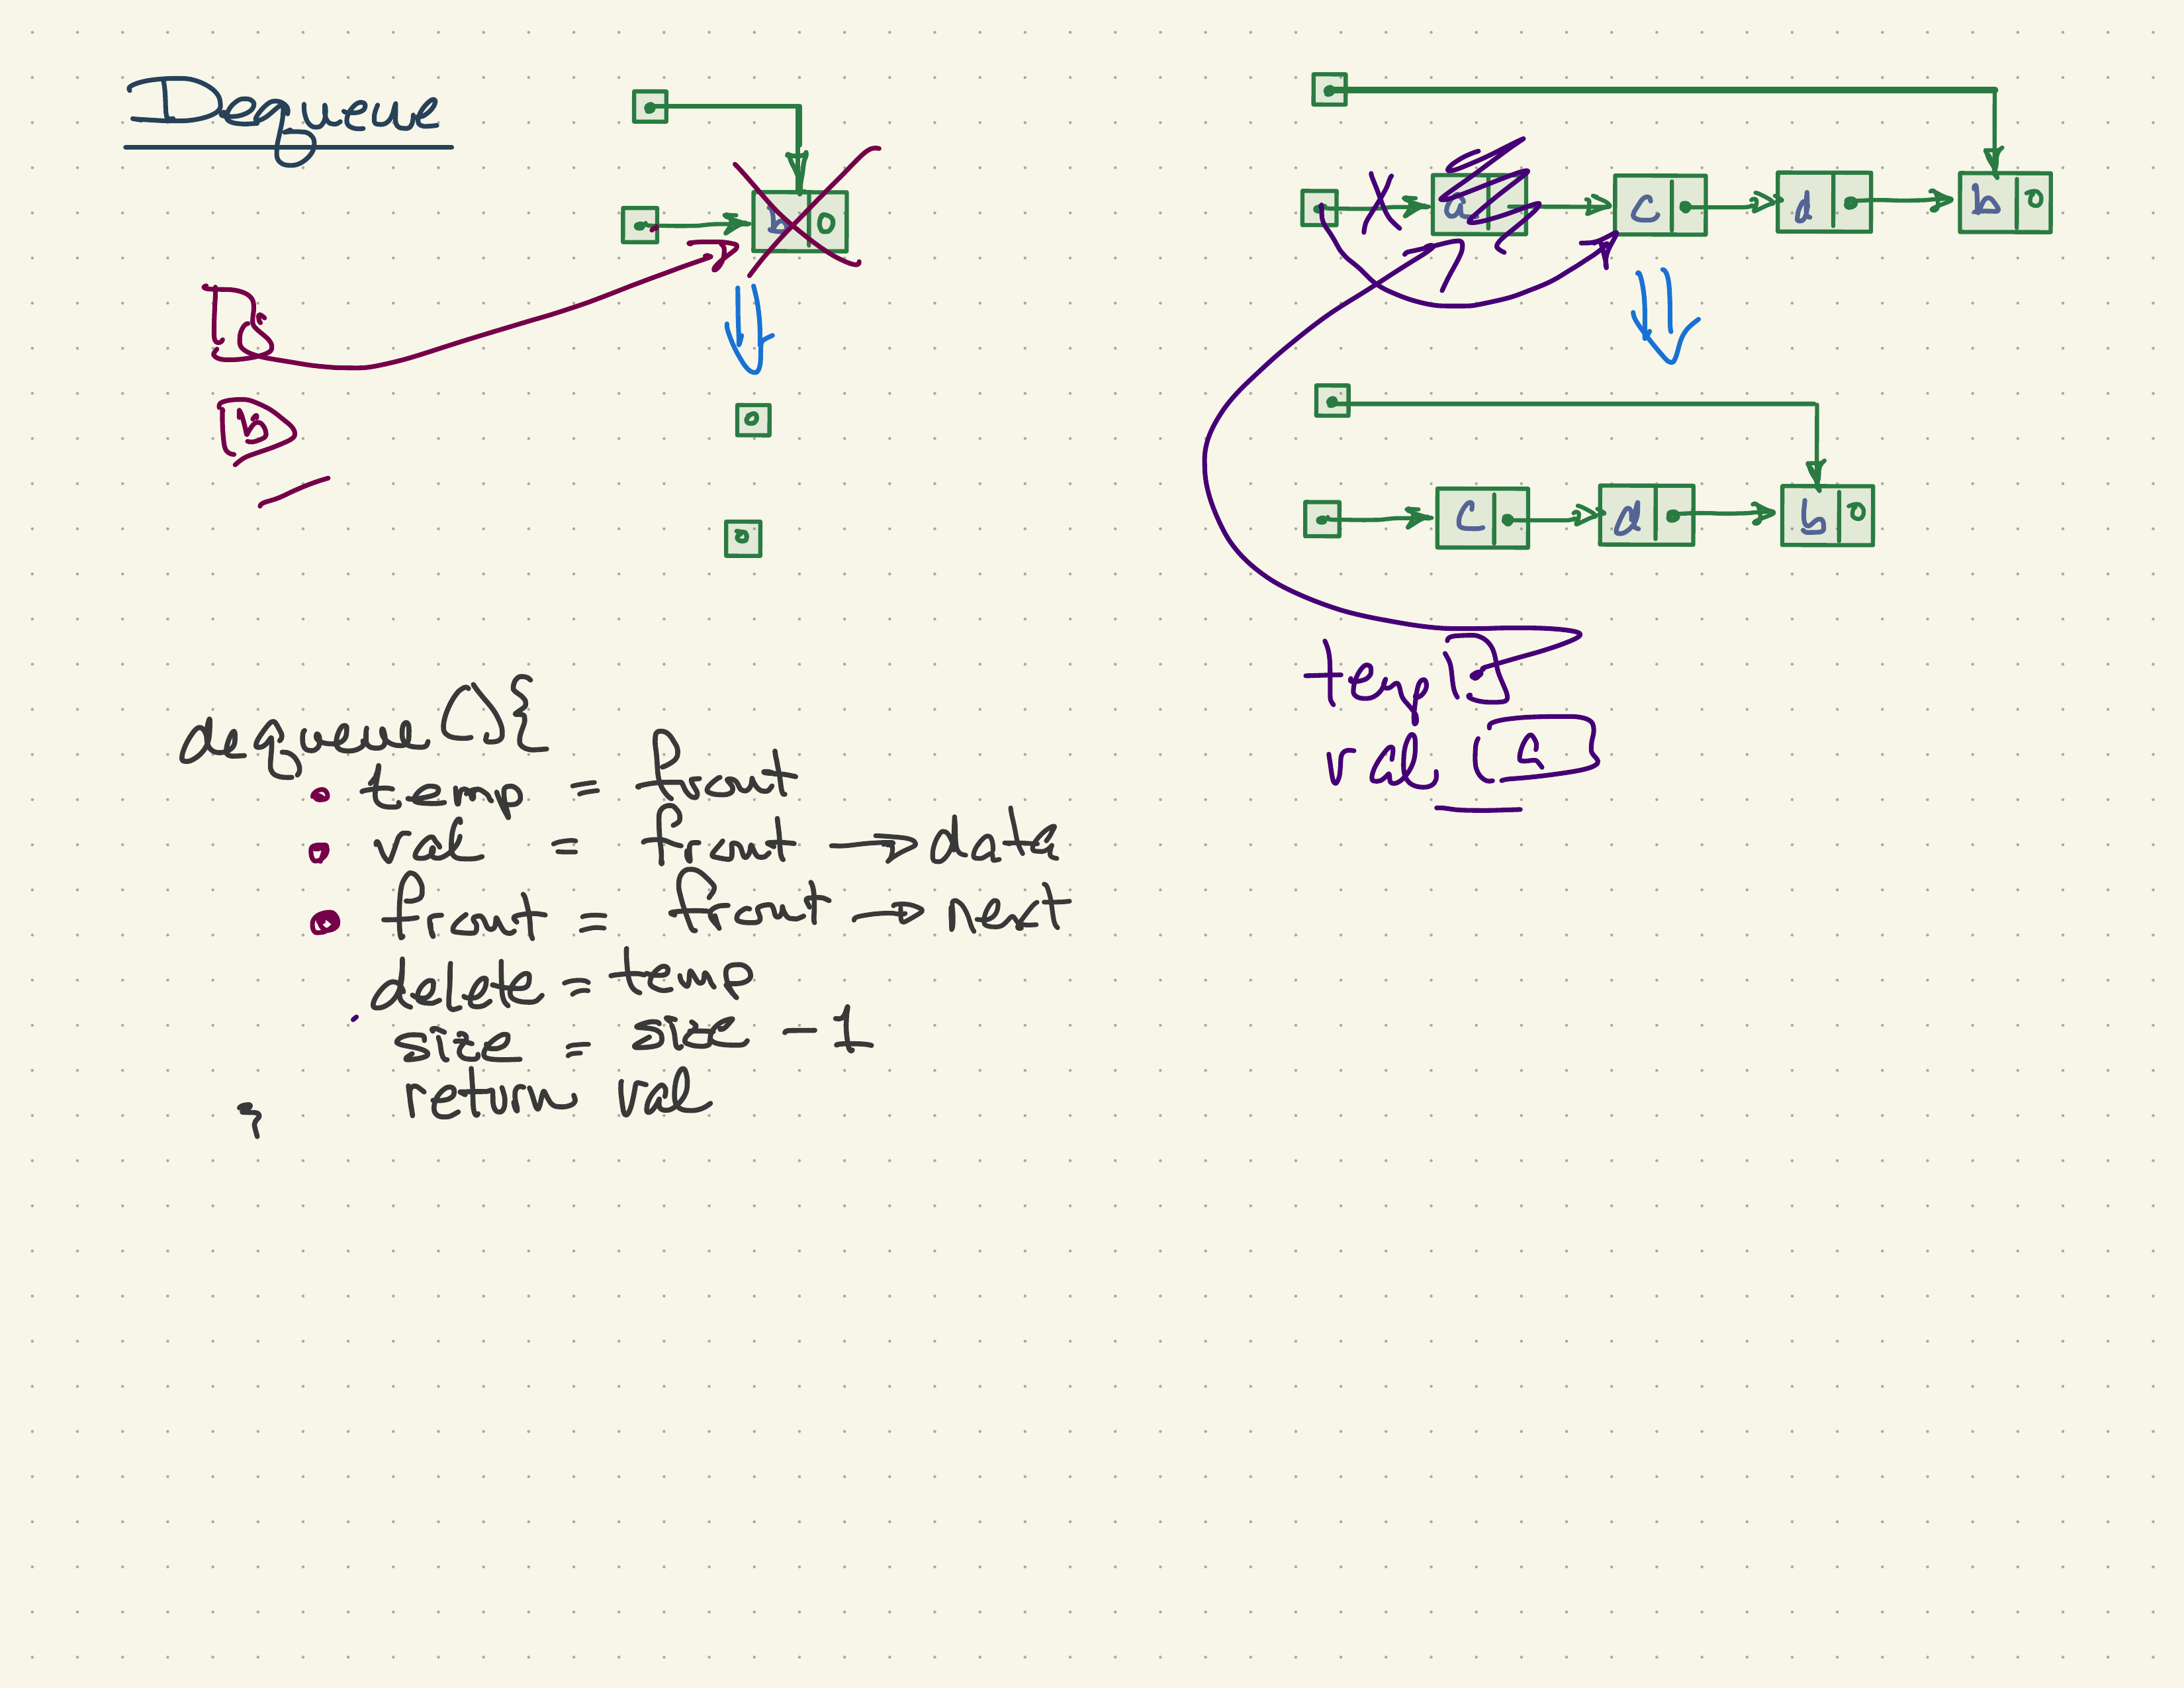 Dequeue
b 0
b
0
0
a
c
d
b 0
c
d
b 0
temp
val a
dequeue(){
temp = front
val = front → data
front = front → next
delete = temp
size = size - 1
return val
}